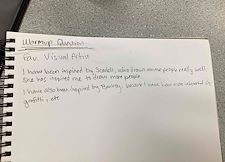 Warmup Question
Fav. Visual Artist
I have been inspired by Scarlett, who draws anime people really well.
She has inspired me to draw more people.
I have also been inspired by Banksy, because I have been more interested in
graffiti, etc